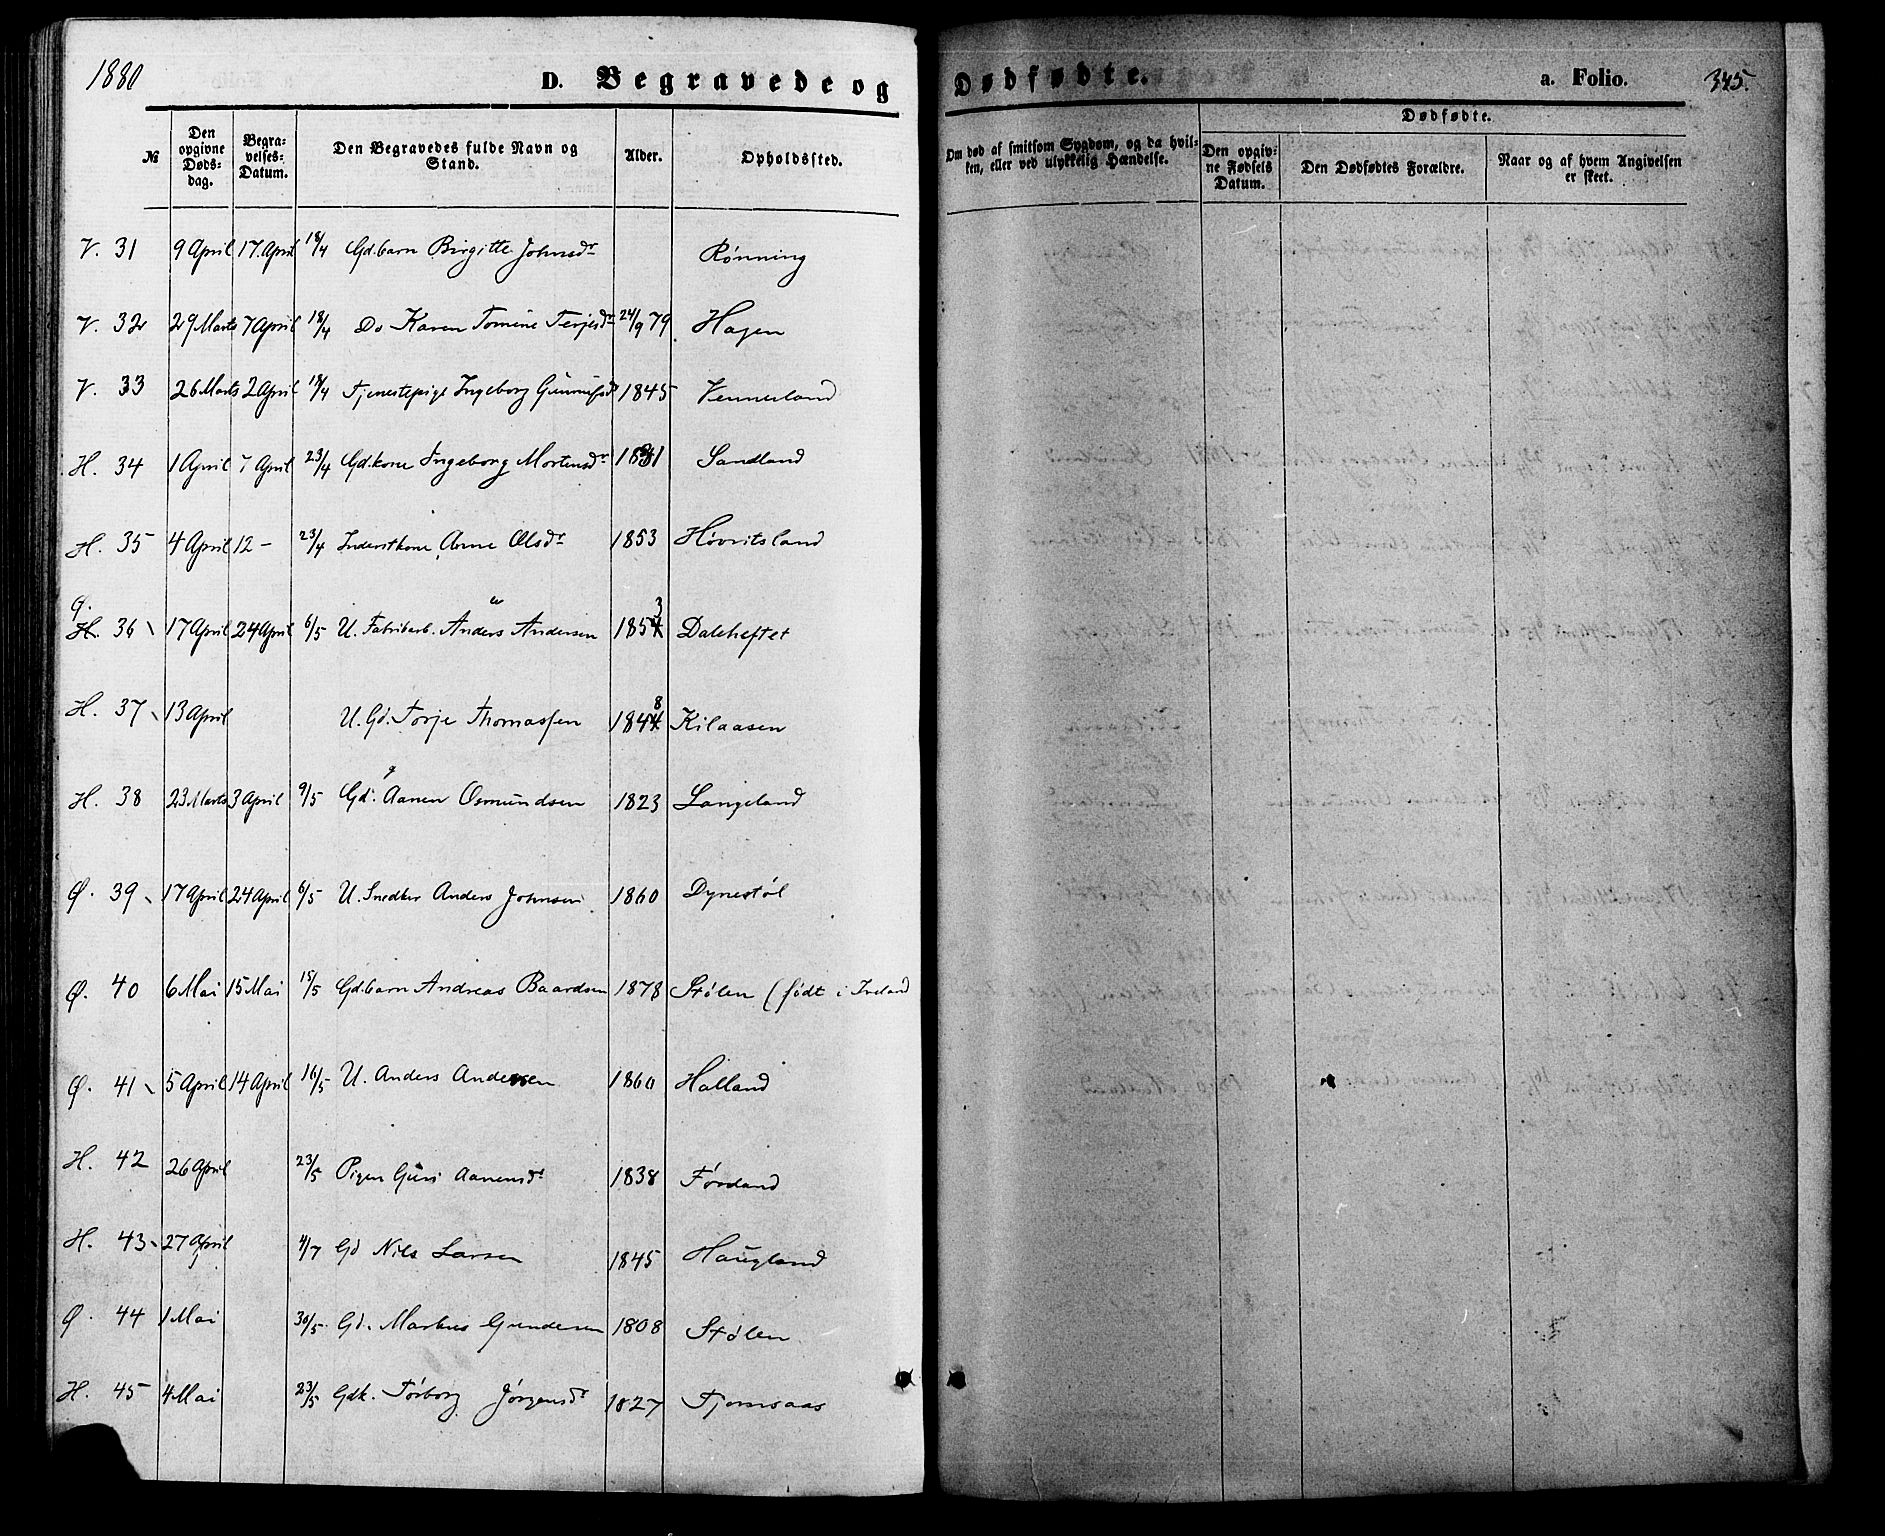 1880
D. Begravede og
Dødfødte.
a. Folio.
345.
№
Den opgivne Døds-dag.
Begra-velses-Datum.
Den Begravedes fulde Navn og Stand.
Alder.
Opholdssted.
Om død af smitsom Sygdom, og da hvil-ken, eller ved ulykkelig Hændelse.
Dødfødte.
Den opgiv-ne Fødsels Datum.
Den Dødfødtes Forældre.
Naar og af hvem Angivelsen er skeet.
V. 31 9 April 17. April 18/4 Gdbarn Birgitte Johnsdr Rønning
V. 32 29 Marts 7 April 18/4 Do Karen Tomine Terjesdr 24/9 79 Hagen
V. 33 26 Marts 2 April 18/4 Tjenestepige Ingeborg 1845 Vennerland
H. 34 1 April 7 April 23/4 Gdkone Ingeborg Mortensdr Sandland
H. 35 4 April 12 - 23/4 Inderstkone Anne Olsdr 1853 Høvritsland
Ø.
H. 36 17 April 24 April 6/5 U. Fabrikarb. Anders Andersen 1854 3 Daleheftet
H. 37 13 April U. Gd. Torje Thomassen 1844 8 Kilaasen
H. 38 23 Marts 3 April 9/5 Gd. Aanen Osmundsen 1823 Langeland
Ø. 39 17 April 24 April 6/5 U. Snedker Anders Johnsen 1860 Dynestøl
Ø. 40 6 Mai 15 Mai 15/5 Gdbarn Andreas Baardsen 1878 Stølen (født i Iveland
Ø. 41 5 April 14 April 16/5 U. Anders Andersen 1860 Halland
H. 42 26 April 23/5 Pigen Guri Aanensdr 1838 Førdand
H. 43 27 April 4/7 Gd Nils Larsen 1845 Haugland
Ø. 44 1 Mai 30/5 Gd. Markus Gundersen 1808 Stølen
H. 45 4 Mai 23/5 Gdk. Torborg Jørgensdr 1827 Tjomsaas